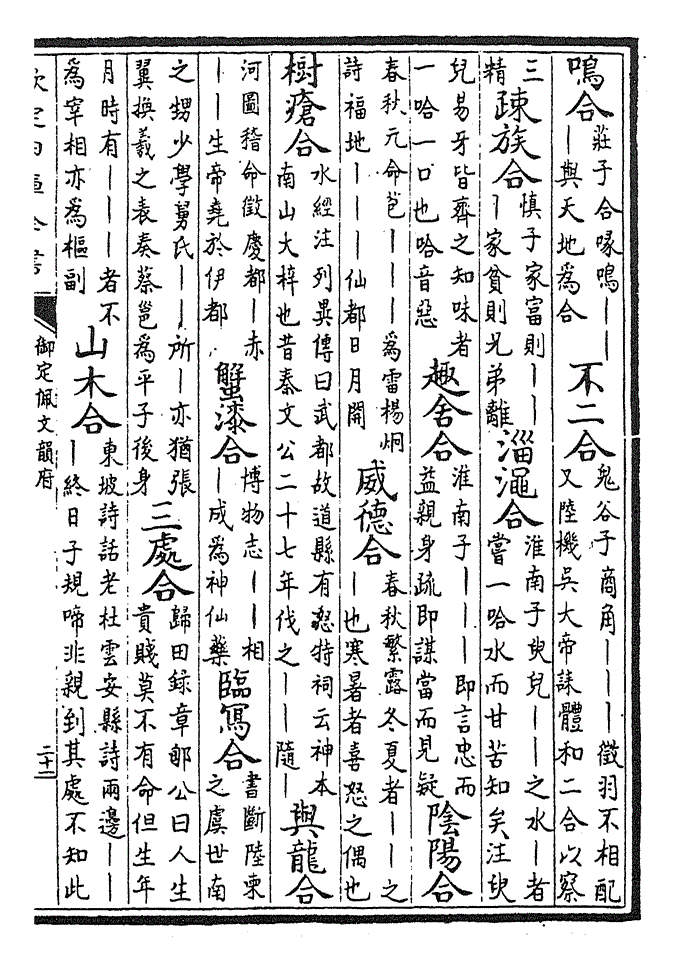 鳴合 莊子合喙鳴｜｜
｜與天地為合
不二合 鬼谷子商角｜｜｜徵羽不相配
又陸機吳大帝誄體和二合以察
三
精
疎族合 慎子家富則｜｜
｜家貧則兄弟離
淄澠合 淮南子臾兒｜｜之水｜者
嘗一哈水而甘苦知矣注臾
兒易牙皆齊之知味者
一哈一口也哈音惡
趣舍合 淮南子｜｜｜即言忠而
益親身疏即謀當而見疑
陰陽合
春秋元命苞｜｜｜為雷楊炯
詩福地｜｜｜仙都日月開
威德合 春秋繁露冬夏者｜｜之
｜也寒暑者喜怒之偶也
樹瘡合 水經注列異傳曰武都故道縣有怒特祠云神本
南山大梓也昔秦文公二十七年伐之｜｜隨｜
與龍合
河圖稽命徵慶都｜赤
｜｜生帝堯於伊都
蟹漆合 博物志｜｜相
｜成為神仙藥
臨寫合 書斷陸柬
之虞世南
之甥少學舅氏｜｜所｜亦猶張
翼換羲之表奏蔡邕為平子後身
三處合 歸田録章郇公曰人生
貴賤莫不有命但生年
月時有｜｜｜者不
為宰相亦為樞副
山木合 東坡詩話老杜雲安縣詩兩邊｜｜
｜終日子規啼非親到其處不知此
欽定四庫全書
御定佩文韻府
二十二